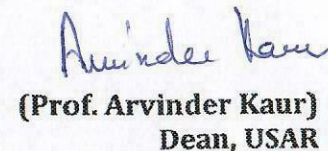 Arvinder Kaur
(Prof. Arvinder Kaur)
Dean, USAR